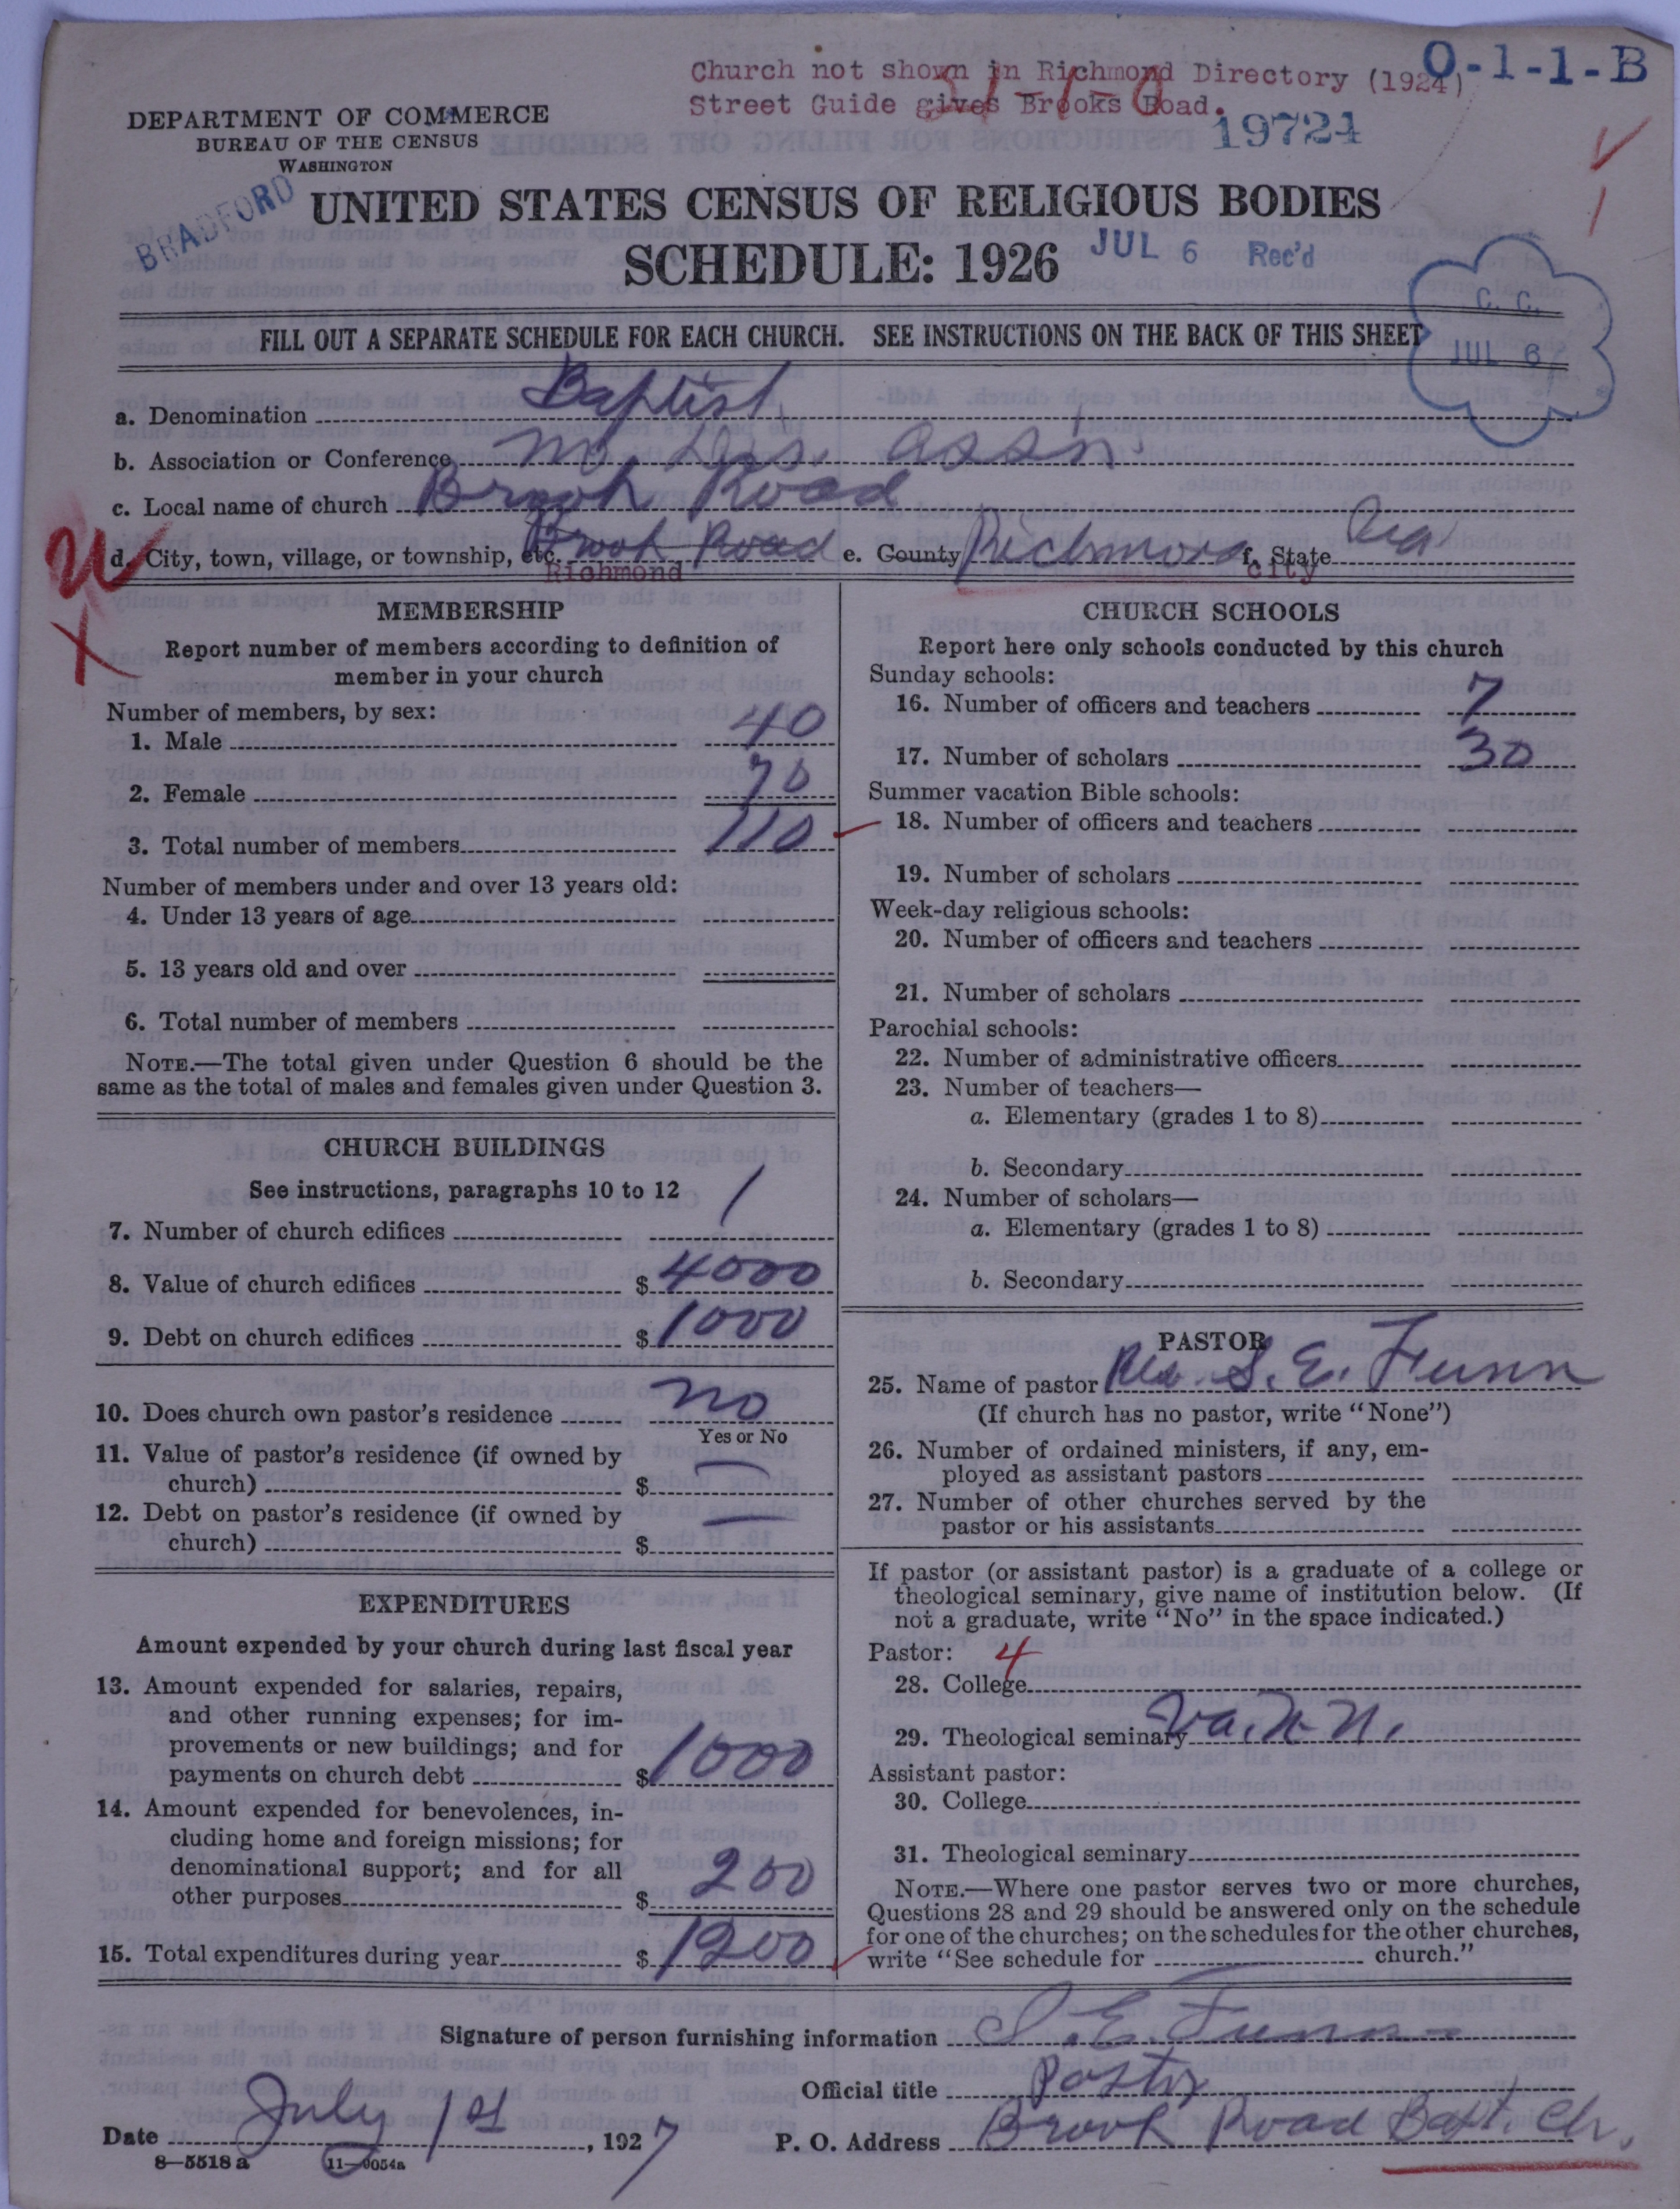 Church not shown in Richmond Directory (1924)
Street Guide gives Brooks Road.
0-1-1-B
19724
DEPARTMENT OF COMMERCE
BUREAU OF THE CENSUS
WASHINGTON
BRADFORD
UNITED STATES CENSUS OF RELIGIOUS BODIES
SCHEDULE: 1926
JUL 6 Rec'd
C. C.
JUL 6
FILL OUT A SEPARATE SCHEDULE FOR EACH CHURCH. SEE INSTRUCTIONS ON THE BACK OF THIS SHEET
a. Denomination Baptist
b. Association or Conference Assn.
c. Local name of church Brook Road
d. City, town, village, or township, etc. Brook Road e. County Richmond f. State Va
Richmond city
MEMBERSHIP
Report number of members according to definition of
member in your church
Number of members, by sex:
1. Male 40
2. Female 70
3. Total number of members 110
Number of members under and over 13 years old:
4. Under 13 years of age
5. 13 years old and over
6. Total number of members
NOTE.—The total given under Question 6 should be the
same as the total of males and females given under Question 3.
CHURCH BUILDINGS
See instructions, paragraphs 10 to 12
7. Number of church edifices 1
8. Value of church edifices $ 4000
9. Debt on church edifices $ 1000
10. Does church own pastor's residence no
Yes or No
11. Value of pastor's residence (if owned by
church) $ —
12. Debt on pastor's residence (if owned by
church) $ —
EXPENDITURES
Amount expended by your church during last fiscal year
13. Amount expended for salaries, repairs,
and other running expenses; for im-
provements or new buildings; and for
payments on church debt $ 1000
14. Amount expended for benevolences, in-
cluding home and foreign missions; for
denominational support; and for all
other purposes $ 200
15. Total expenditures during year $ 1200
CHURCH SCHOOLS
Report here only schools conducted by this church
Sunday schools:
16. Number of officers and teachers 7
17. Number of scholars 30
Summer vacation Bible schools:
18. Number of officers and teachers
19. Number of scholars
Week-day religious schools:
20. Number of officers and teachers
21. Number of scholars
Parochial schools:
22. Number of administrative officers
23. Number of teachers—
a. Elementary (grades 1 to 8)
b. Secondary
24. Number of scholars—
a. Elementary (grades 1 to 8)
b. Secondary
PASTOR
25. Name of pastor Rev. S. E. Funn
(If church has no pastor, write "None")
26. Number of ordained ministers, if any, em-
ployed as assistant pastors
27. Number of other churches served by the
pastor or his assistants
If pastor (or assistant pastor) is a graduate of a college or
theological seminary, give name of institution below. (If
not a graduate, write "No" in the space indicated.)
Pastor: 4
28. College
29. Theological seminary Va.
Assistant pastor:
30. College
31. Theological seminary
NOTE.—Where one pastor serves two or more churches,
Questions 28 and 29 should be answered only on the schedule
for one of the churches; on the schedules for the other churches,
write "See schedule for church."
Signature of person furnishing information S. E. Funn
Official title Pastor
Date July 1st, 1927 P. O. Address Brook Road Bapt. Ch.
8—5518 a 11—9054a